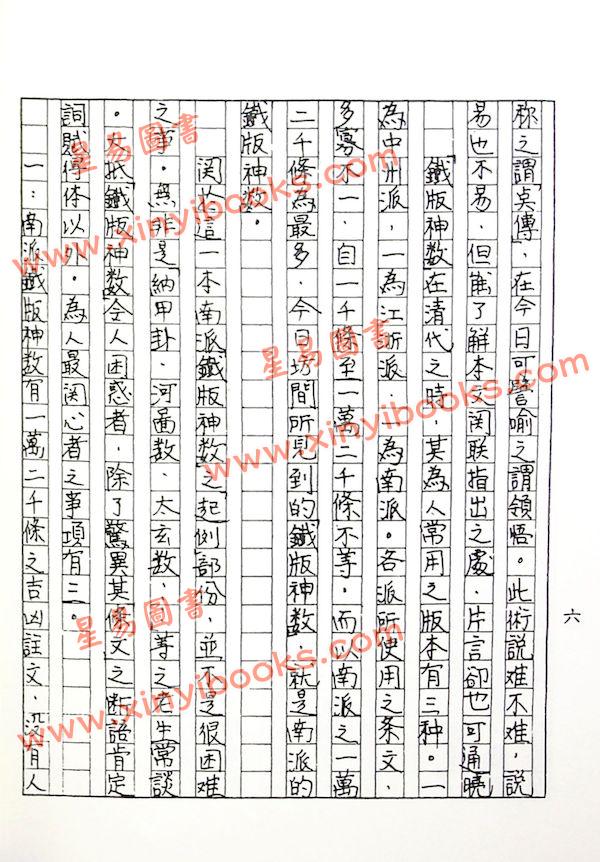 称之謂「真傳」，在今日可譬喻之謂領悟。此術説难不难，説
易也不易，但能了解本文関联指出之處，片言卻也可通曉
「鐵版神数」在清代之時，其為人常用之版本有三种。一
為中州派，一為江浙派，一為南派。各派所使用之条文，
多寡不一，自一千條至一萬二千條不等。而以南派之一萬
二千條為最多，今日坊間所見到的「鐵版神数」，就是南派的
鐵版神数。
関於這一本南派「鐵版神数」之「起例」部份，並不是很困难
之事。無非是「納甲卦、河畐数、太玄数」，等之老生常談
。大抵「鐵版神数」令人困惑者，除了驚異其條文之断語肯定
詞賦傳体以外。為人最関心者之事項有三。
一：南派鐵版神数有一萬二千條之吉凶註文，没有人
六
星易圖書
www.xinyibooks.com
星易圖書
www.xinyibooks.com
星易圖書
www.xinyibooks.com